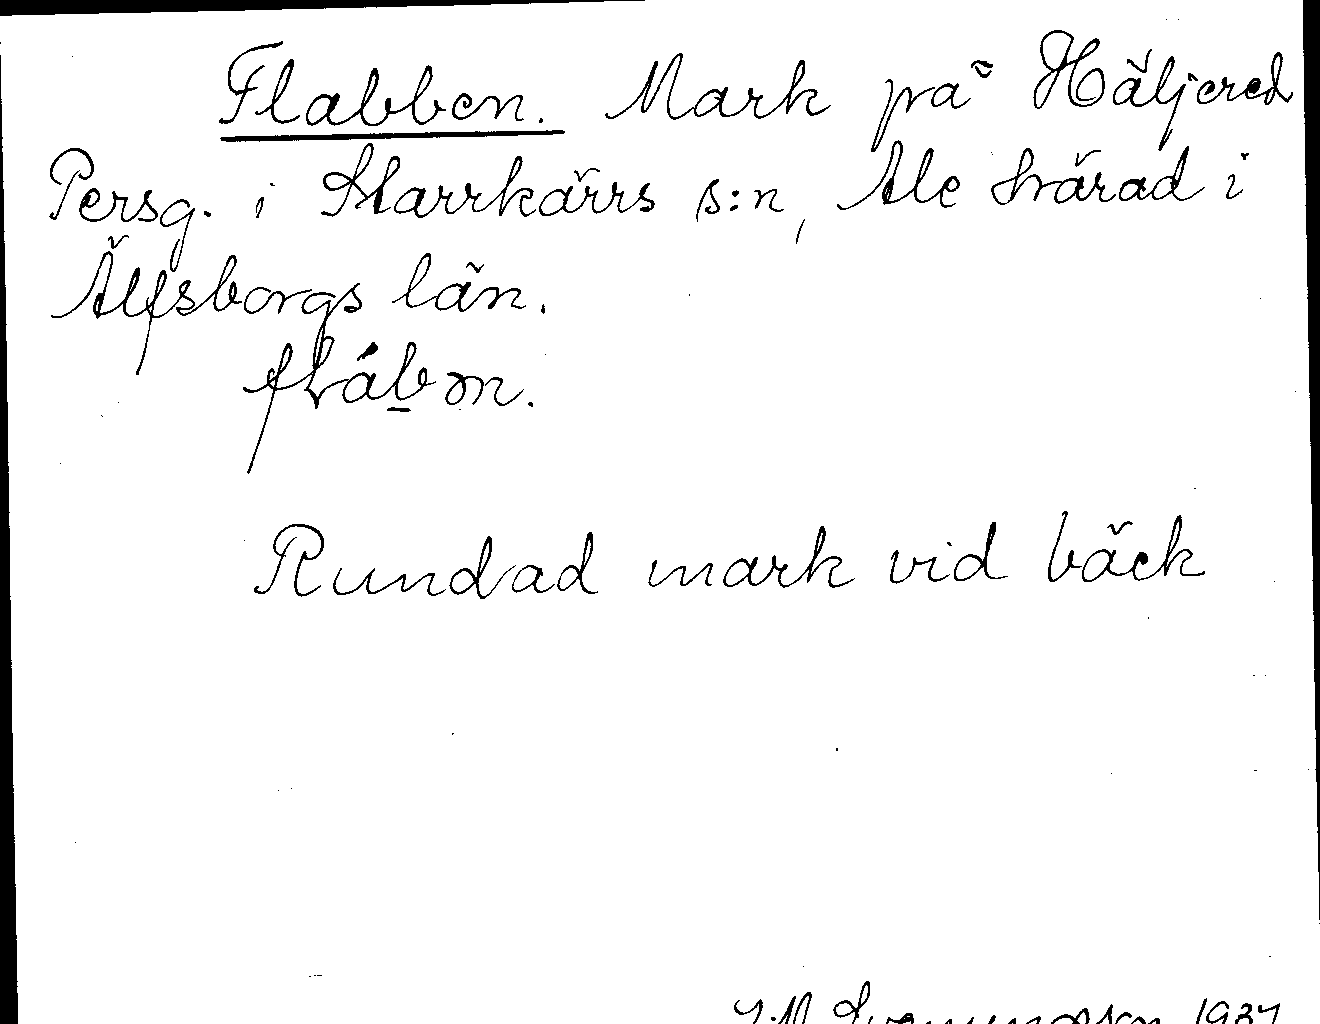 Flabben. Mark på Häljered
Persg. i Starrkärrs s:n, Ale härad i
Älfsborgs län.
flábən.
Rundad mark vid bäck
1937